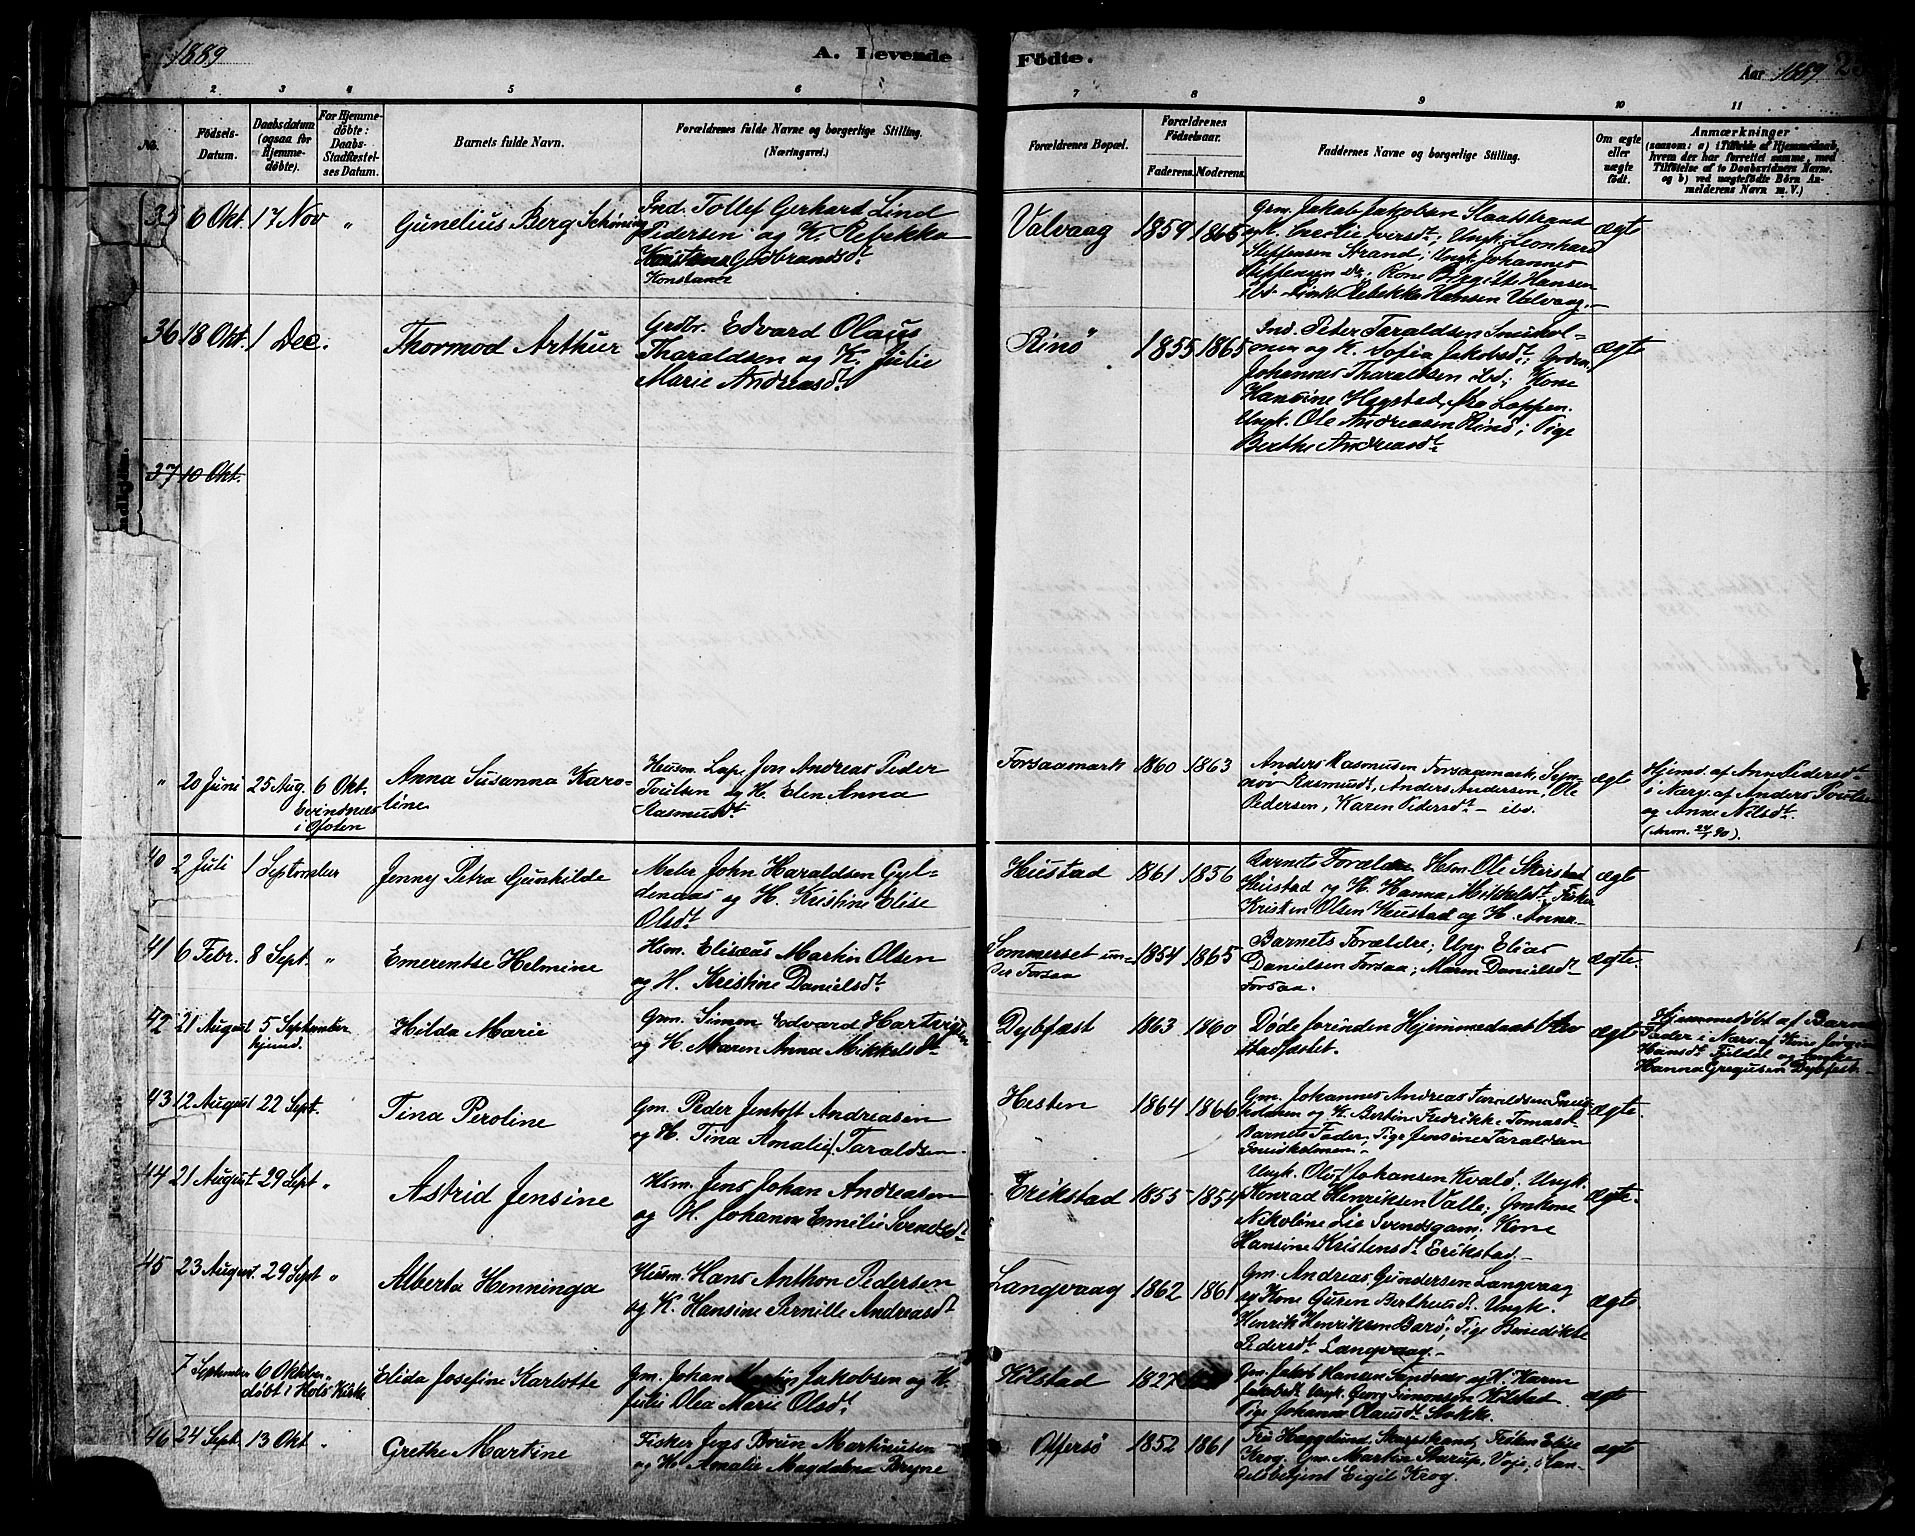 1889
A. Levende
Födte.
Aar 1889.
2 3 4 5 6 7 8 9 10 11
No.
Födsels-
Datum.
Daabsdatum
(ogsaa for
Hjemme-
døbte).
For Hjemme-
døbte:
Daabs-
Stadfæstel-
ses Datum.
Barnets fulde Navn.
Forældrenes fulde Navne og borgerlige Stilling.
(Næringsvei.)
Forældrenes Bopæl.
Forældrenes
Fødselsaar.
Faderens. Moderens.
Faddernes Navne og borgerlige Stilling.
Om ægte
eller
uægte
født.
Anmærkninger
(saasom: a) i Tilfælde af Hjemmedaab,
hvem der har forrettet samme, med
Tilføielse af to Daabsvidners Navne.
og b) ved uægtefødte Börn An-
melderens Navn m. V.)
35 6 Okt. 17 Nov " Gunelius Berg Schøning
Ind. Tollef Gerhard Lind
Pedersen og K. Rebekka
Gudbrandsdt.
Konstanse
Valvaag 1859 1865
Grm. Jakob Jakobsen Slaatstrand
og K. Cecilie Iversdt.; Ungk. Leonhard
Steffensen Strand; Ungk. Johannes
Steffensen do; Kone Birgitte Hansen
ibd. Enke Rebekka Hansen Valvaag.
ægte
36 18 Okt. 1 Dec. Thormod Arthur
Grdbr. Edvard Olaus
Tharaldsen og K. Julie
Marie Andreasdt.
Rinö 1855 1865
Ind. Peter Taraldsen Smihol-
men og K. Sofia Jakobsdt.; Grdm.
Johannes Tharaldsen ibd; Kone
Hansine Hegstad, Loppen.
Ungk. Ole Andreasen Rinö; Pige
Berthe Andreasdt.
ægte
37 10 Okt.
" 20 Juni 25 Aug. 6 Okt.
Evindnes
i Ofoten
Anna Susanna Karo-
line
Husm. Lap. Jon Andreas Peder
Poulsen og H. Elen Anna
Rasmusdt.
Forsaamark 1860 1863
Anders Rasmusen Forsaamark,
Rasmusdt., Anders Andersen, Ole
Pedersen, Karen Pedersdt. ibd.
ægt
Hjemd. af Ann Pedersdt.
i Nærv. af Anders Poulsen
og Anne Nilsdt.
(Anm. 24/1 90).
40 2 Juli 1 September Jenny Petra Gunhilde
Maler John Haraldsen Gyl-
denaas og H. Kristine Elise
Olsdt.
Heustad 1861 1856
Barnets Forældre Hsm. Ole Skeistad
Heustad og H. Hanna Mikkelsdt. Fisker
Kristen Olsen Heustad og H. Anna
ægt
41 6 Febr. 8 Sept. " Emerentse Helmine
Hsm. Elisæus Martin Olsen
og H. Kristine Danielsdt.
Sommerset un-
der Forsaa 1854 1865
Barnets Forældre; Ung. Elias
Danielsen Forsaa; Maren Danielsdt.
Forsaa.
ægte.
42 21 August 5 September
hjemd.
Hilda Marie
Gm. Simon Edvard Hartvigsen
og H. Maren Anna Mikkelsdt.
Dybfæst 1863 1860
Døde forinden Hjemmedaaben blev
stadfæstet.
ægte
Hjemmedøbt af Barnets
Fader i Nærv. af Kone Jørgine
Hansdt. Fuldal og Enke
Hanna Gregusen Dybfest.
43 12 August 22 Sept. Tina Peroline
Gm. Peder Jentoft Andreasen
og H. Tina Amalie Taraldsen.
Hesten 1864 1866
Gm. Johannes Andreas Taraldsen Smi-
holmen og H. Bertine Fredrikke Tomasdt.
Barnets Fader, Pige Jensine Taraldsen
Smidholmen.
ægte.
44 21 August 29 Sept " Astrid Jensine
Hsm. Jens Johan Andreasen
og H. Johanna Emelie Svendsdt.
Erikstad 1855 1854
Ungk. Oluf Johansen Kvalö. Ungk.
Konrad Henriksen Valle; Gmkone
Nikoline Lie Svendsgam; Kone
Hansine Kristensdt. Erikstad.
ægte.
45 23 August. 29 Sept " Alberta Henninga
Husm. Hans Anthon Pedersen
og K. Hansine Pernille Andreasdt.
Langvaag 1862 1861
Gm. Andreas Gundersen Langvaag
og Kone Guren Berthusdt. Ungk.
Henrik Henriksen Barö; Pige Benedikte
Pedersdt. Langvaag.
ægte.
7 September 6 Oktober "
døbt i Hols Kirke
Elida Josefine Karlotte
Gm. Johan Martin Jakobsen og H.
Julie Olea Marie Olsdt.
Hilstad 1827
Gm. Jakob Hansen Sandnes og H. Karen
Jakobsdt. Ungk. Georg Simonsen Hilstad.
Pige Johanna Olausdt. Stokke.
ægt
46 24 Sept. 13 Okt " Grethe Martine
Fisker Jens Bruun Martinusen
og H. Amalie Magdalena Bryne
Offersö 1852 1861
Fru Hauglund, Skarpstrand, Frøken Elise
Krog. Gm. Martin Skarup, Voje, Han-
delsbetjent Eigil Krog.
ægt